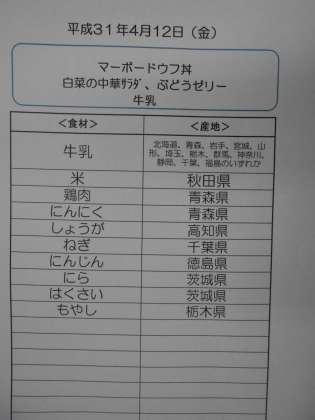 平成31年4月12日（金）
マーボードウフ丼
白菜の中華ｻﾗﾀﾞ、ぶどうゼリー
牛乳
＜食材＞ ＜産地＞
牛乳 北海道、青森、岩手、宮城、山
形、埼玉、栃木、群馬、神奈川、
静岡、千葉、福島のいずれか
米 秋田県
鶏肉 青森県
にんにく 青森県
しょうが 高知県
ねぎ 千葉県
にんじん 徳島県
にら 茨城県
はくさい 茨城県
もやし 栃木県